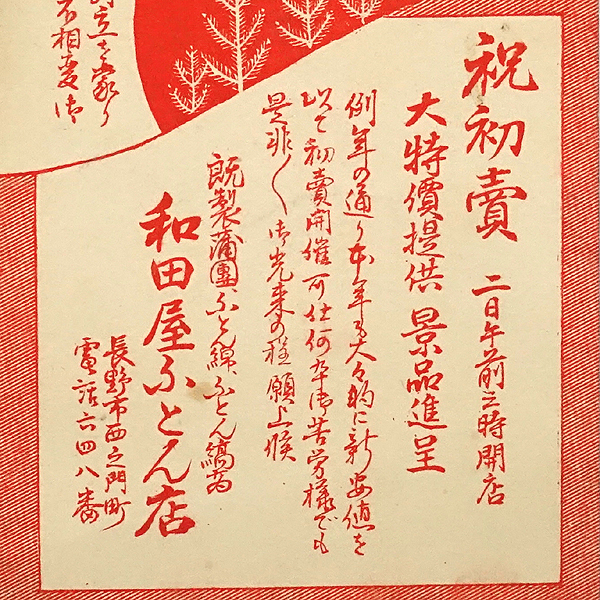 祝初賣 二日午前三時開店
大特價提供 景品進呈
例年の通り本年も大々的に新安値を
以て初賣開催可仕何卒御苦労様でも
是非〱御光来の程願上候
既製蒲團、ふとん綿、ふとん縞
和田屋ふとん店
長野市西之門町
電話六四八番
不相変御